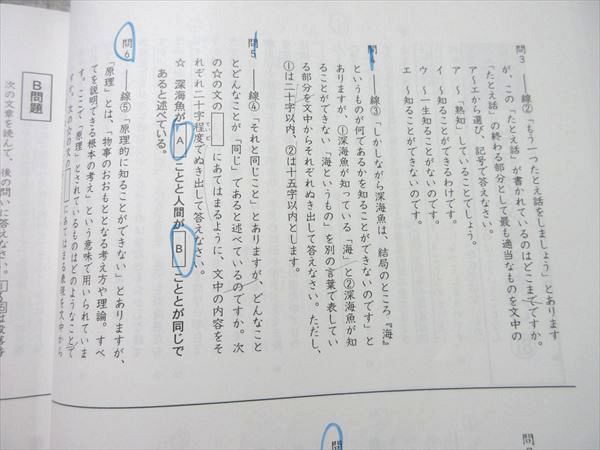 問3 ――線②「もう一つたとえ話をしましょう」とあります
が、この「たとえ話」が書かれているのはどこまでですか。
「たとえ話」の終わる部分として最も適当なものを文中の
ア〜エから選び、記号で答えなさい。
ア 〜「熟知」していることでしょう。
イ 〜知ることができるわけです。
ウ 〜一生知ることがないのです。
エ 〜知ることができないのです。
問4 ――線③「しかしながら深海魚は、結局のところ『海』
というものが何であるかを知ることができないのです」と
ありますが、①深海魚が知っている「海」と②深海魚が知
ることができない「海というもの」を別の言葉で表してい
る部分を文中からそれぞれぬき出して答えなさい。ただし、
①は二十字以内、②は十五字以内とします。
問5 ――線④「それと同じこと」とありますが、どんなこと
とどんなことが「同じ」であると述べているのですか。次
の☆の文の□にあてはまるように、文中の内容をそ
れぞれ二十字程度でぬき出して答えなさい。
☆ 深海魚が A ことと人間が B こととが同じで
あると述べている。
問6 ――線⑤「原理的に知ることができない」とありますが、
「原理」とは、「物事のおおもととなる考え方や理論。すべ
てを説明できる根本の考え」という意味で用いられていま
す。ここで「原理」とされているものはどのようなことで
すか。次の文の□にあてはまる表現を文中から
B問題
次の文章を読んで、後の問いに答えなさい。
問